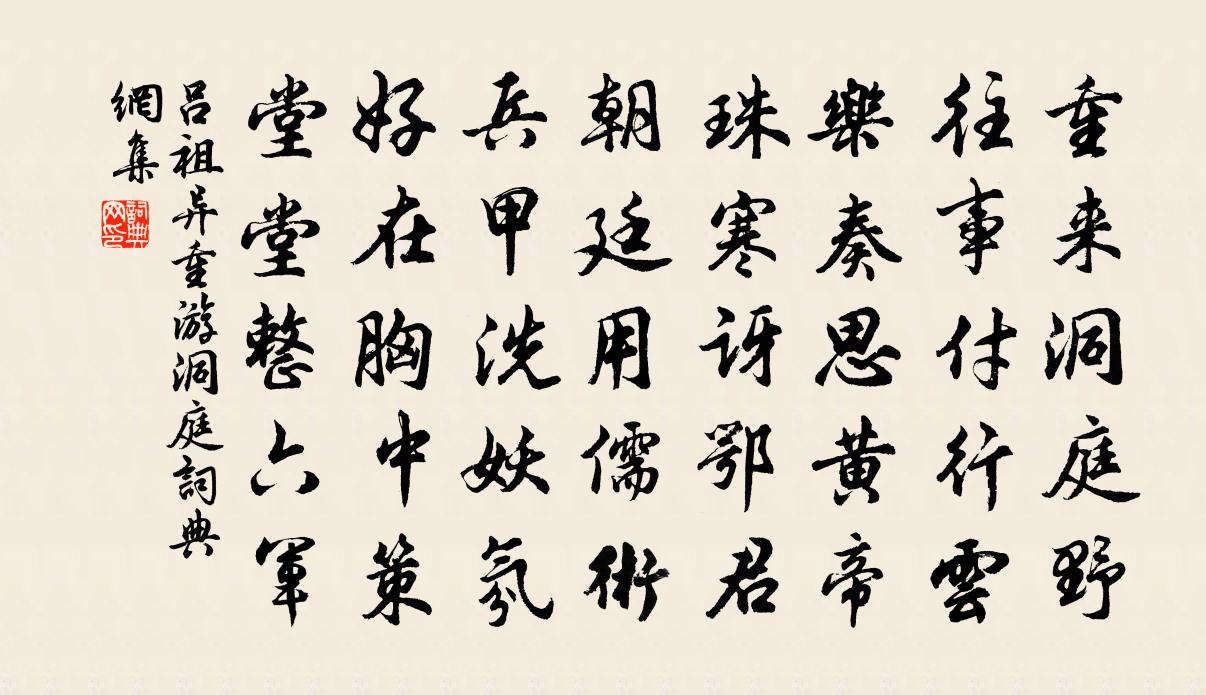 重来洞庭野
往事付行雲
樂奏思黄帝
珠寒訝鄂君
朝廷用儒術
兵甲洗妖氛
好在胸中策
堂堂整六軍
吕祖异重游洞庭詞典
網集
詞典网印